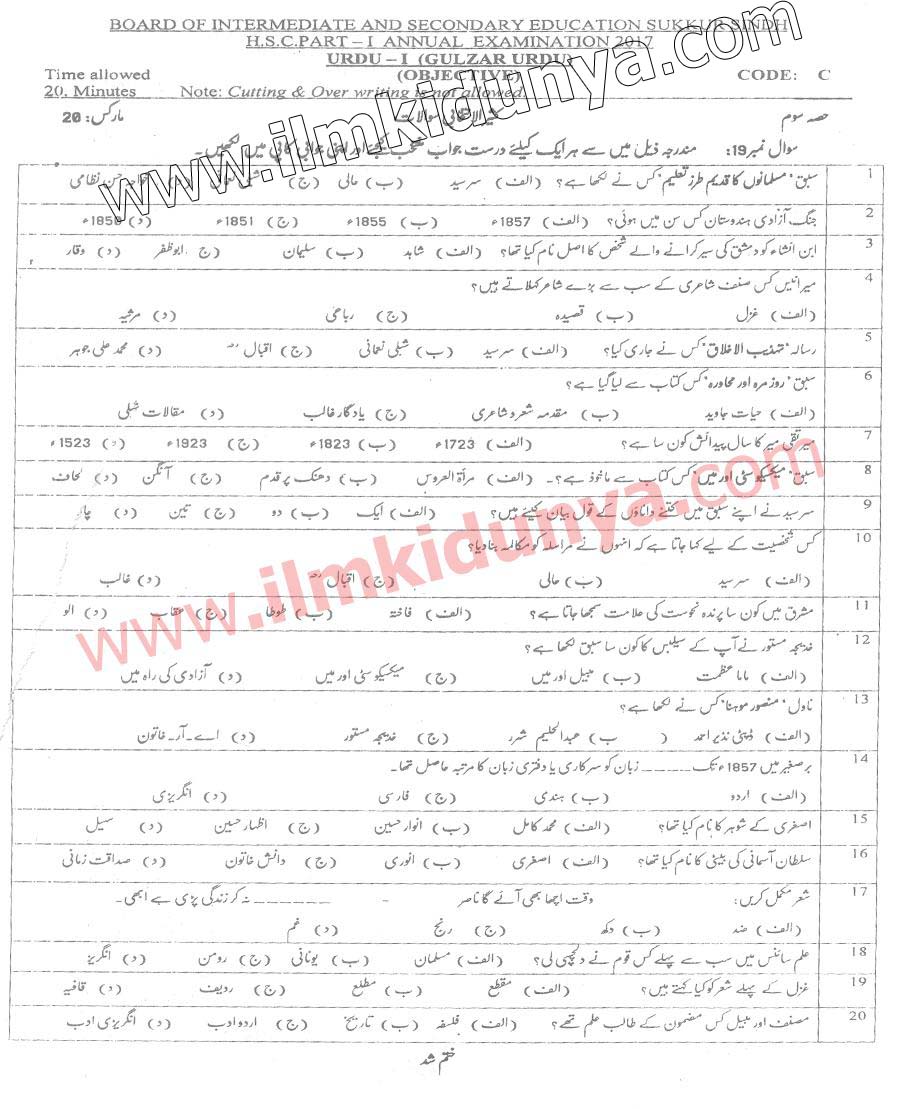 BOARD OF INTERMEDIATE AND SECONDARY EDUCATION SUKKUR SINDH
H.S.C.PART – I ANNUAL EXAMINATION 2017
URDU – I (GULZAR URDU)
Time allowed (OBJECTIVE) CODE: C
20. Minutes Note: Cutting & Over writing is not allowed.
www.ilmkidunya.com
حصہ سوم کثیر الانتخابی سوالات مارکس: 20
سوال نمبر 19: مندرجہ ذیل میں سے ہر ایک کیلئے درست جواب منتخب کیجئے اور اپنی جوابی کاپی میں لکھیں۔
1 سبق "مسلمانوں کا قدیم طرز تعلیم" کس نے لکھا ہے؟ (الف) سرسید (ب) حالی (ج) شبلی نعمانی (د) خواجہ حسن نظامی
2 جنگ آزادی ہندوستان کس سن میں ہوئی؟ (الف) 1857ء (ب) 1855ء (ج) 1851ء (د) 1850ء
3 ابن انشاء کو دمشق کی سیر کرانے والے شخص کا اصل نام کیا تھا؟ (الف) شاہد (ب) سلیمان (ج) ابوظفر (د) وقار
4 میر انیس کس صنف شاعری کے سب سے بڑے شاعر کہلاتے ہیں؟
(الف) غزل (ب) قصیدہ (ج) رباعی (د) مرثیہ
5 رسالہ "تہذیب الاخلاق" کس نے جاری کیا؟ (الف) سرسید (ب) شبلی نعمانی (ج) اقبال رح (د) محمد علی جوہر
6 سبق "روزمرہ اور محاورہ" کس کتاب سے لیا گیا ہے؟
(الف) حیات جاوید (ب) مقدمہ شعر و شاعری (ج) یادگار غالب (د) مقالات شبلی
7 میر تقی میر کا سال پیدائش کون سا ہے؟ (الف) 1723ء (ب) 1823ء (ج) 1923ء (د) 1523ء
8 سبق "میکسیکو سٹی اور میں" کس کتاب سے ماخوذ ہے؟۔ (الف) مرأة العروس (ب) دھنک پر قدم (ج) آنگن (د) لحاف
www.ilmkidunya.com
9 سرسید نے اپنے سبق میں کتنے داناؤں کے قول بیان کیئے ہیں؟ (الف) ایک (ب) دو (ج) تین (د) چار
10 کس شخصیت کے لیے کہا جاتا ہے کہ انہوں نے مراسلہ کو مکالمہ بنا دیا؟
(الف) سرسید (ب) حالی (ج) اقبال رح (د) غالب
11 مشرق میں کون سا پرندہ نحوست کی علامت سمجھا جاتا ہے؟ (الف) فاختہ (ب) طوطا (ج) عقاب (د) الو
12 خدیجہ مستور نے آپ کے سیلبس کا کون سا سبق لکھا ہے؟
(الف) ماما عظمت (ب) مبیل اور میں (ج) میکسیکو سٹی اور میں (د) آزادی کی راہ میں
13 ناول "منصور موہنا" کس نے لکھا ہے؟
(الف) ڈپٹی نذیر احمد (ب) عبدالحلیم شرر (ج) خدیجہ مستور (د) اے۔آر۔خاتون
14 برصغیر میں 1857ء تک ______ زبان کو سرکاری یا دفتری زبان کا مرتبہ حاصل تھا۔
(الف) اردو (ب) ہندی (ج) فارسی (د) انگریزی
15 اصغری کے شوہر کا نام کیا تھا؟ (الف) محمد کامل (ب) انوار حسین (ج) اظہار حسین (د) سہیل
16 سلطان آسمانی کی بیٹی کا نام کیا تھا؟ (الف) اصغری (ب) انوری (ج) دانش خاتون (د) صداقت زمانی
17 شعر مکمل کریں: وقت اچھا بھی آئے گا ناصر - ________ نہ کر زندگی پڑی ہے ابھی۔
(الف) ضد (ب) دکھ (ج) رنج (د) غم
18 علم سائنس میں سب سے پہلے کس قوم نے دلچسپی لی؟ (الف) مسلمان (ب) یونانی (ج) رومن (د) انگریز
19 غزل کے پہلے شعر کو کیا کہتے ہیں؟ (الف) مقطع (ب) مطلع (ج) ردیف (د) قافیہ
20 مصنف اور مبیل کس مضمون کے طالب علم تھے؟ (الف) فلسفہ (ب) تاریخ (ج) اردو ادب (د) انگریزی ادب
ختم شد